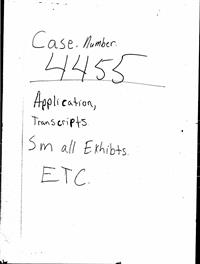 Case. Number.
4455
Application,
Transcripts.
Small Exhibts.
ETC.